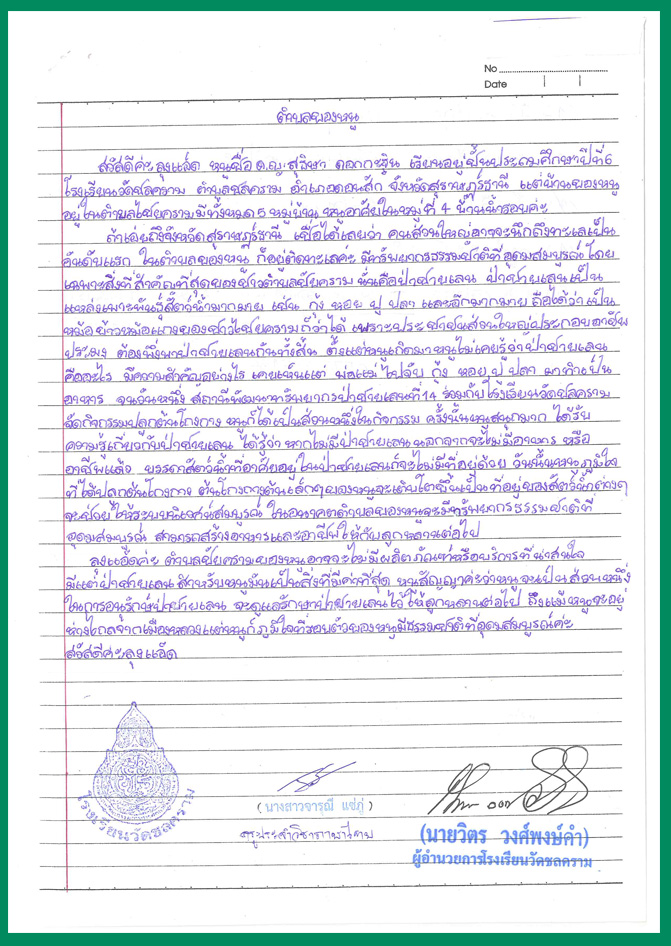 No
Date
ตำบลของหนู
สวัสดีค่ะลุงแอ๊ด หนูชื่อ ด.ญ.สุริษา ดอกกะฐิน เรียนอยู่ชั้นประถมศึกษาปีที่6
โรงเรียนวัดชลคราม ตำบลชลคราม อำเภอดอนสัก จังหวัดสุราษฎร์ธานี แต่บ้านของหนู
อยู่ในตำบลไชยครามมีทั้งหมด 5 หมู่บ้าน หนูอาศัยในหมู่ที่ 4 บ้านน้ำรอบค่ะ
ถ้าเอ่ยถึงจังหวัดสุราษฎร์ธานี เชื่อได้เลยว่า คนส่วนใหญ่อาจจะนึกถึงทะเลเป็น
อันดับแรก ในตำบลของหนู ก็อยู่ติดทะเลคะ มีทรัพยากรธรรมชาติที่อุดมสมบูรณ์ โดย
เฉพาะสิ่งที่สำคัญที่สุดของชาวตำบลชัยคราม นั้นคือป่าชายเลน ป่าชายเลนเป็น
แหล่งเพาะพันธุ์สัตว์น้ำมากมาย เช่น กุ้ง หอย ปู ปลา และอีกมากมาย ถือได้ว่าเป็น
หม้อข้าวหม้อแกงของชาวไชยครามก็ว่าได้ เพราะประชาชนส่วนใหญ่ประกอบอาชีพ
ประมง ต้องพึ่งพาป่าชายเลนกันทั้งสิ้น ตั้งแต่หนูเกิดมาหนูไม่เคยรู้ว่าป่าชายเลน
คืออะไร มีความสำคัญอย่างไร เคยเห็นแต่ พ่อแม่ไปจับ กุ้ง หอย ปู ปลา มาทำเป็น
อาหาร จนวันหนึ่ง สถานีพัฒนาทรัพยากรป่าชายเลนที่ 14 ร่วมกับโรงเรียนวัดชลคราม
จัดกิจกรรมปลูกต้นโกงกาง หนูก็ได้เป็นส่วนหนึ่งในกิจกรรม ครั้งนั้นหนูสนุกมาก ได้รับ
ความรู้เกี่ยวกับป่าชายเลน ได้รู้ว่า หากไม่มีป่าชายเลนนอกจากจะไม่มีอาหาร หรือ
อาชีพแล้ว บรรดาสัตว์น้ำที่อาศัยอยู่ในป่าชายเลนก็จะไม่มีที่อยู่ด้วย วันนั้นหนูภูมิใจ
ที่ได้ปลูกต้นโกงกาง ต้นโกงกางต้นเล็กๆของหนูจะเติบโตขึ้นเป็นที่อยู่ของสัตว์น้ำต่างๆ
จะช่วยให้ระบบนิเวศน์สมบูรณ์ ในอนาคตตำบลของหนูจะมีทรัพยากรธรรมชาติที่
อุดมสมบูรณ์ สามารถสร้างอาหารและอาชีพให้กับลูกหลานต่อไป
ลุงแอ๊ดค่ะ ตำบลชัยครามของหนูอาจจะไม่มีผลิตภัณฑ์หรือบริการที่น่าสนใจ
มีแต่ป่าชายเลน สำหรับหนูมันเป็นสิ่งที่มีค่าที่สุด หนูสัญญาคะว่าหนูจะเป็นส่วนหนึ่ง
ในการอนุรักษ์ป่าชายเลน จะดูแลรักษาป่าชายเลนไว้ให้ลูกหลานต่อไป ถึงแม้หนูจะอยู่
ห่างไกลจากเมืองหลวงแต่หนูก็ภูมิใจที่รอบตัวของหนูมีธรรมชาติที่อุดมสมบูรณ์ค่ะ
สวัสดีค่ะลุงแอ๊ด
โรงเรียนวัดชลคราม
(นางสาวจารุณี แซ่ภู่)
ครูประจำวิชาภาษาไทย
(นายวิตร วงศ์พงษ์คำ)
ผู้อำนวยการโรงเรียนวัดชลคราม